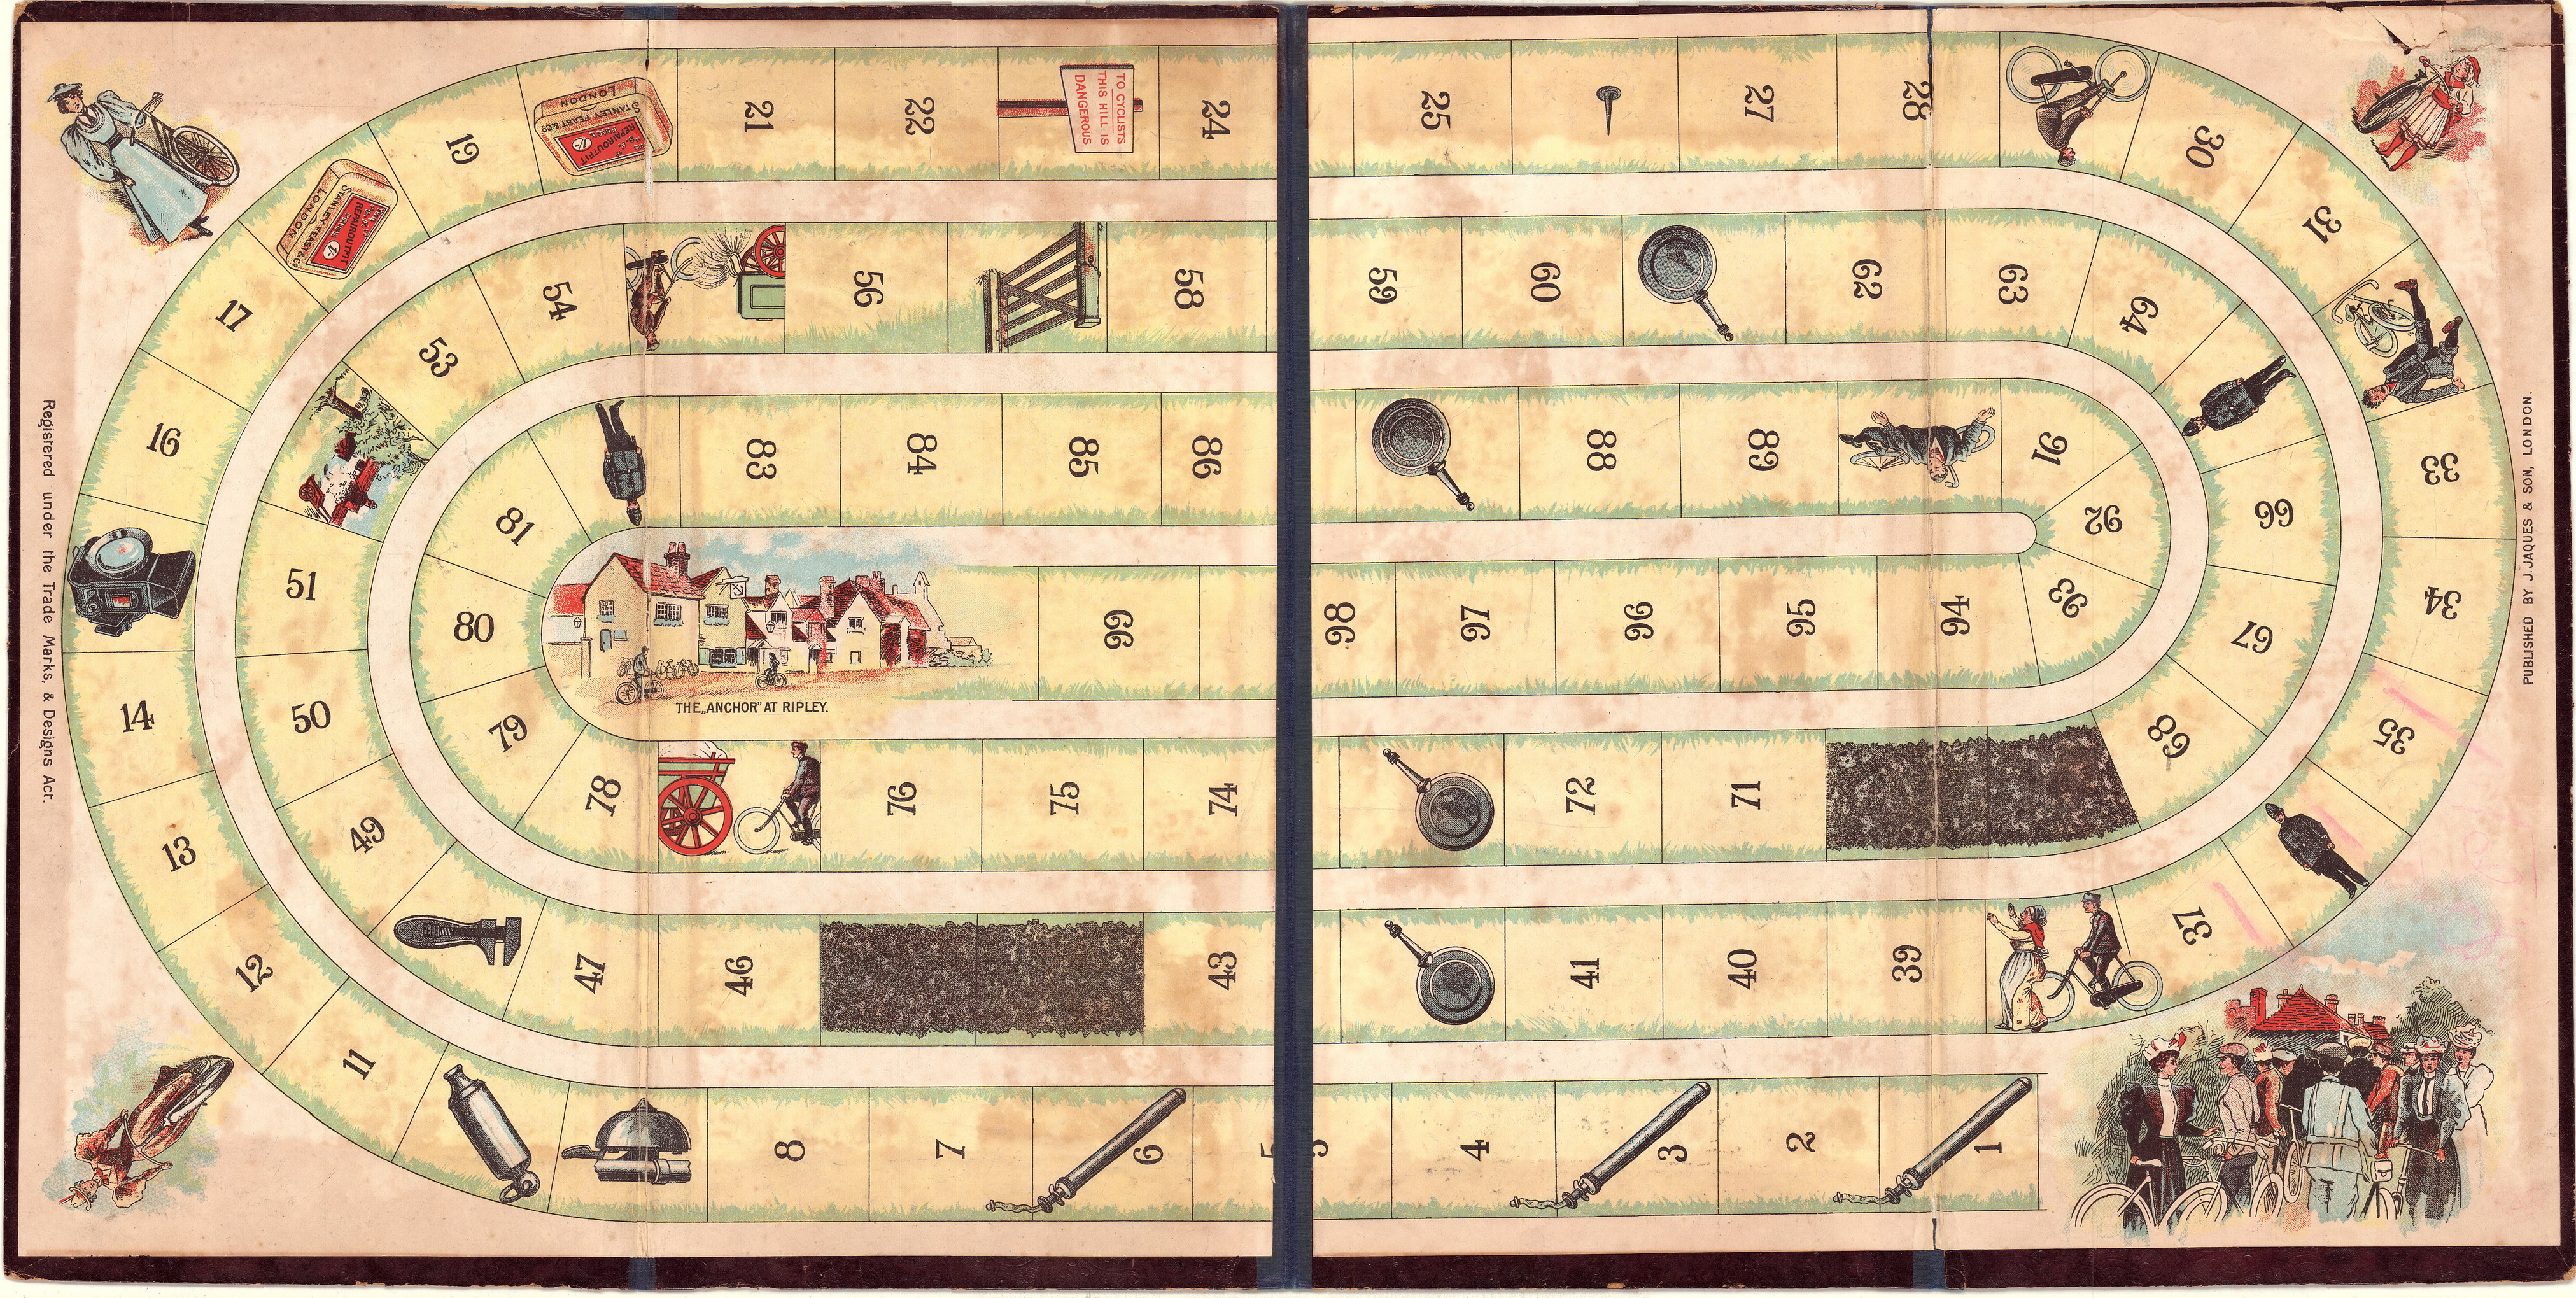 Registered under the Trade Marks, & Designs Act.
PUBLISHED BY J. JAQUES & SON, LONDON.
1
2
3
4
5
5
6
7
8
11
12
13
14
16
17
STANLEY FEAST & Co
LONDON
REPAIROUTFIT
19
STANLEY FEAST & Co
LONDON
REPAIROUTFIT
21
22
TO CYCLISTS
THIS HILL IS
DANGEROUS
24
25
27
28
30
31
33
34
35
37
39
40
41
43
46
47
49
50
51
53
54
56
58
59
60
62
63
64
66
67
68
71
72
74
75
76
78
79
80
81
83
84
85
86
88
89
91
92
93
94
95
96
97
98
99
THE „ANCHOR" AT RIPLEY.